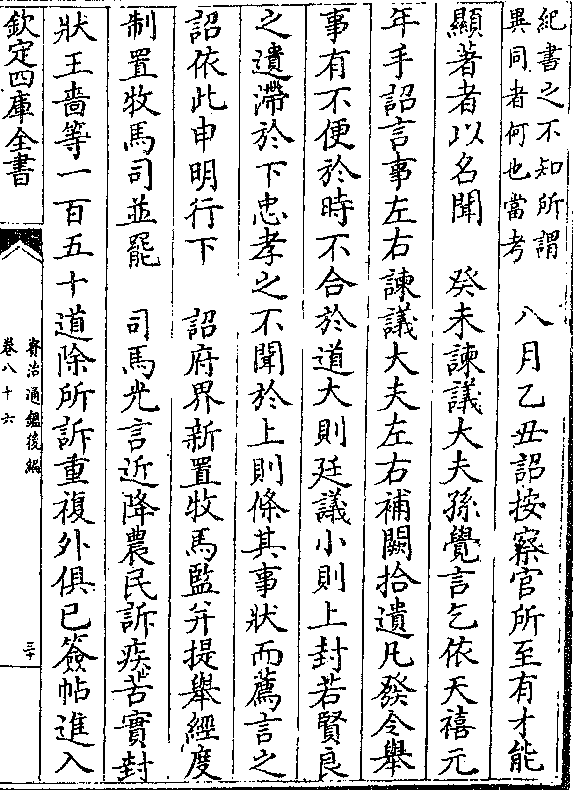 紀書之不知所謂
異同者何也當考
八月乙丑詔按察官所至有才能
顯著者以名聞　癸未諫議大夫孫覺言乞依天禧元
年手詔言事左右諫議大夫左右補闕拾遺凡發令舉
事有不便於時不合於道大則廷議小則上封若賢良
之遺滯於下忠孝之不聞於上則條其事狀而薦言之
詔依此申明行下　詔府界新置牧馬監弁提舉經度
制置牧馬司並罷　司馬光言近降農民訴疾苦實封
狀王嗇等一百五十道除所訴重複外俱已簽帖進入
欽定四庫全書
資治通鑑後編
卷八十六
三十